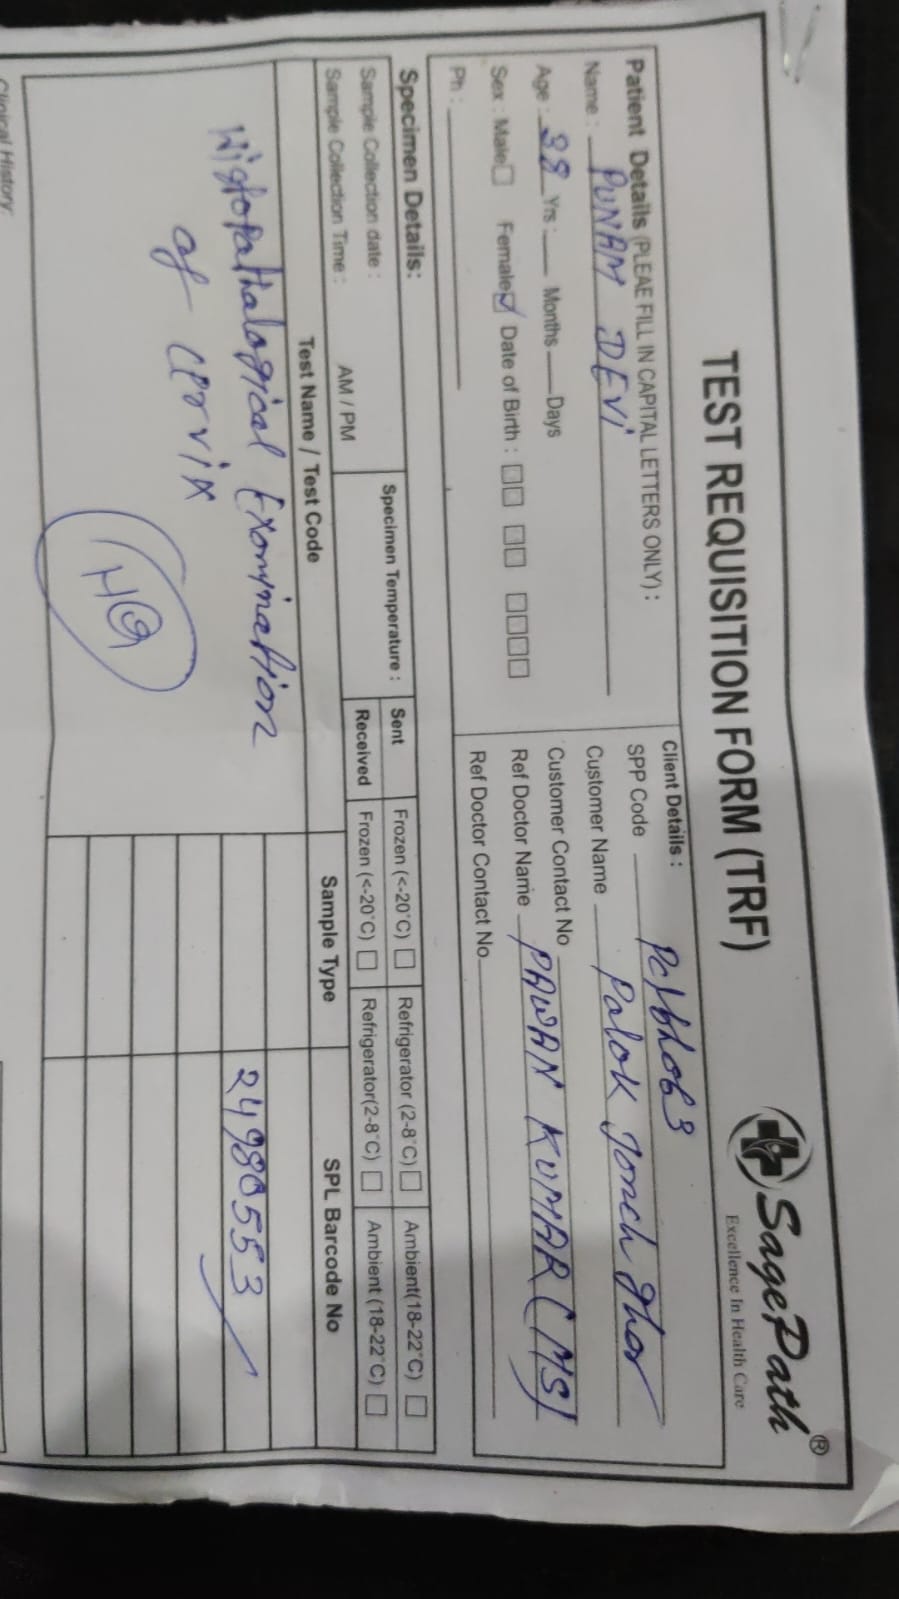 SagePath®
Excellence In Health Care
TEST REQUISITION FORM (TRF)
Patient Details (PLEAE FILL IN CAPITAL LETTERS ONLY) :
Name : PUNAM DEVI
Age : 38 Yrs : Months Days
Sex : Male Female ☑ Date of Birth :
Ph :
Client Details :
SPP Code
Customer Name
Customer Contact No
Ref Doctor Name PAWAN KUMAR (MS)
Ref Doctor Contact No.
Specimen Details:
Sample Collection date :
Sample Collection Time : AM / PM
Specimen Temperature :
Sent Frozen (<-20°C) Refrigerator (2-8°C) Ambient(18-22°C)
Received Frozen (<-20°C) Refrigerator(2-8°C) Ambient (18-22°C)
Test Name / Test Code Sample Type SPL Barcode No
Histopathalogical Examination 24980553
of Cervix
Clinical History: